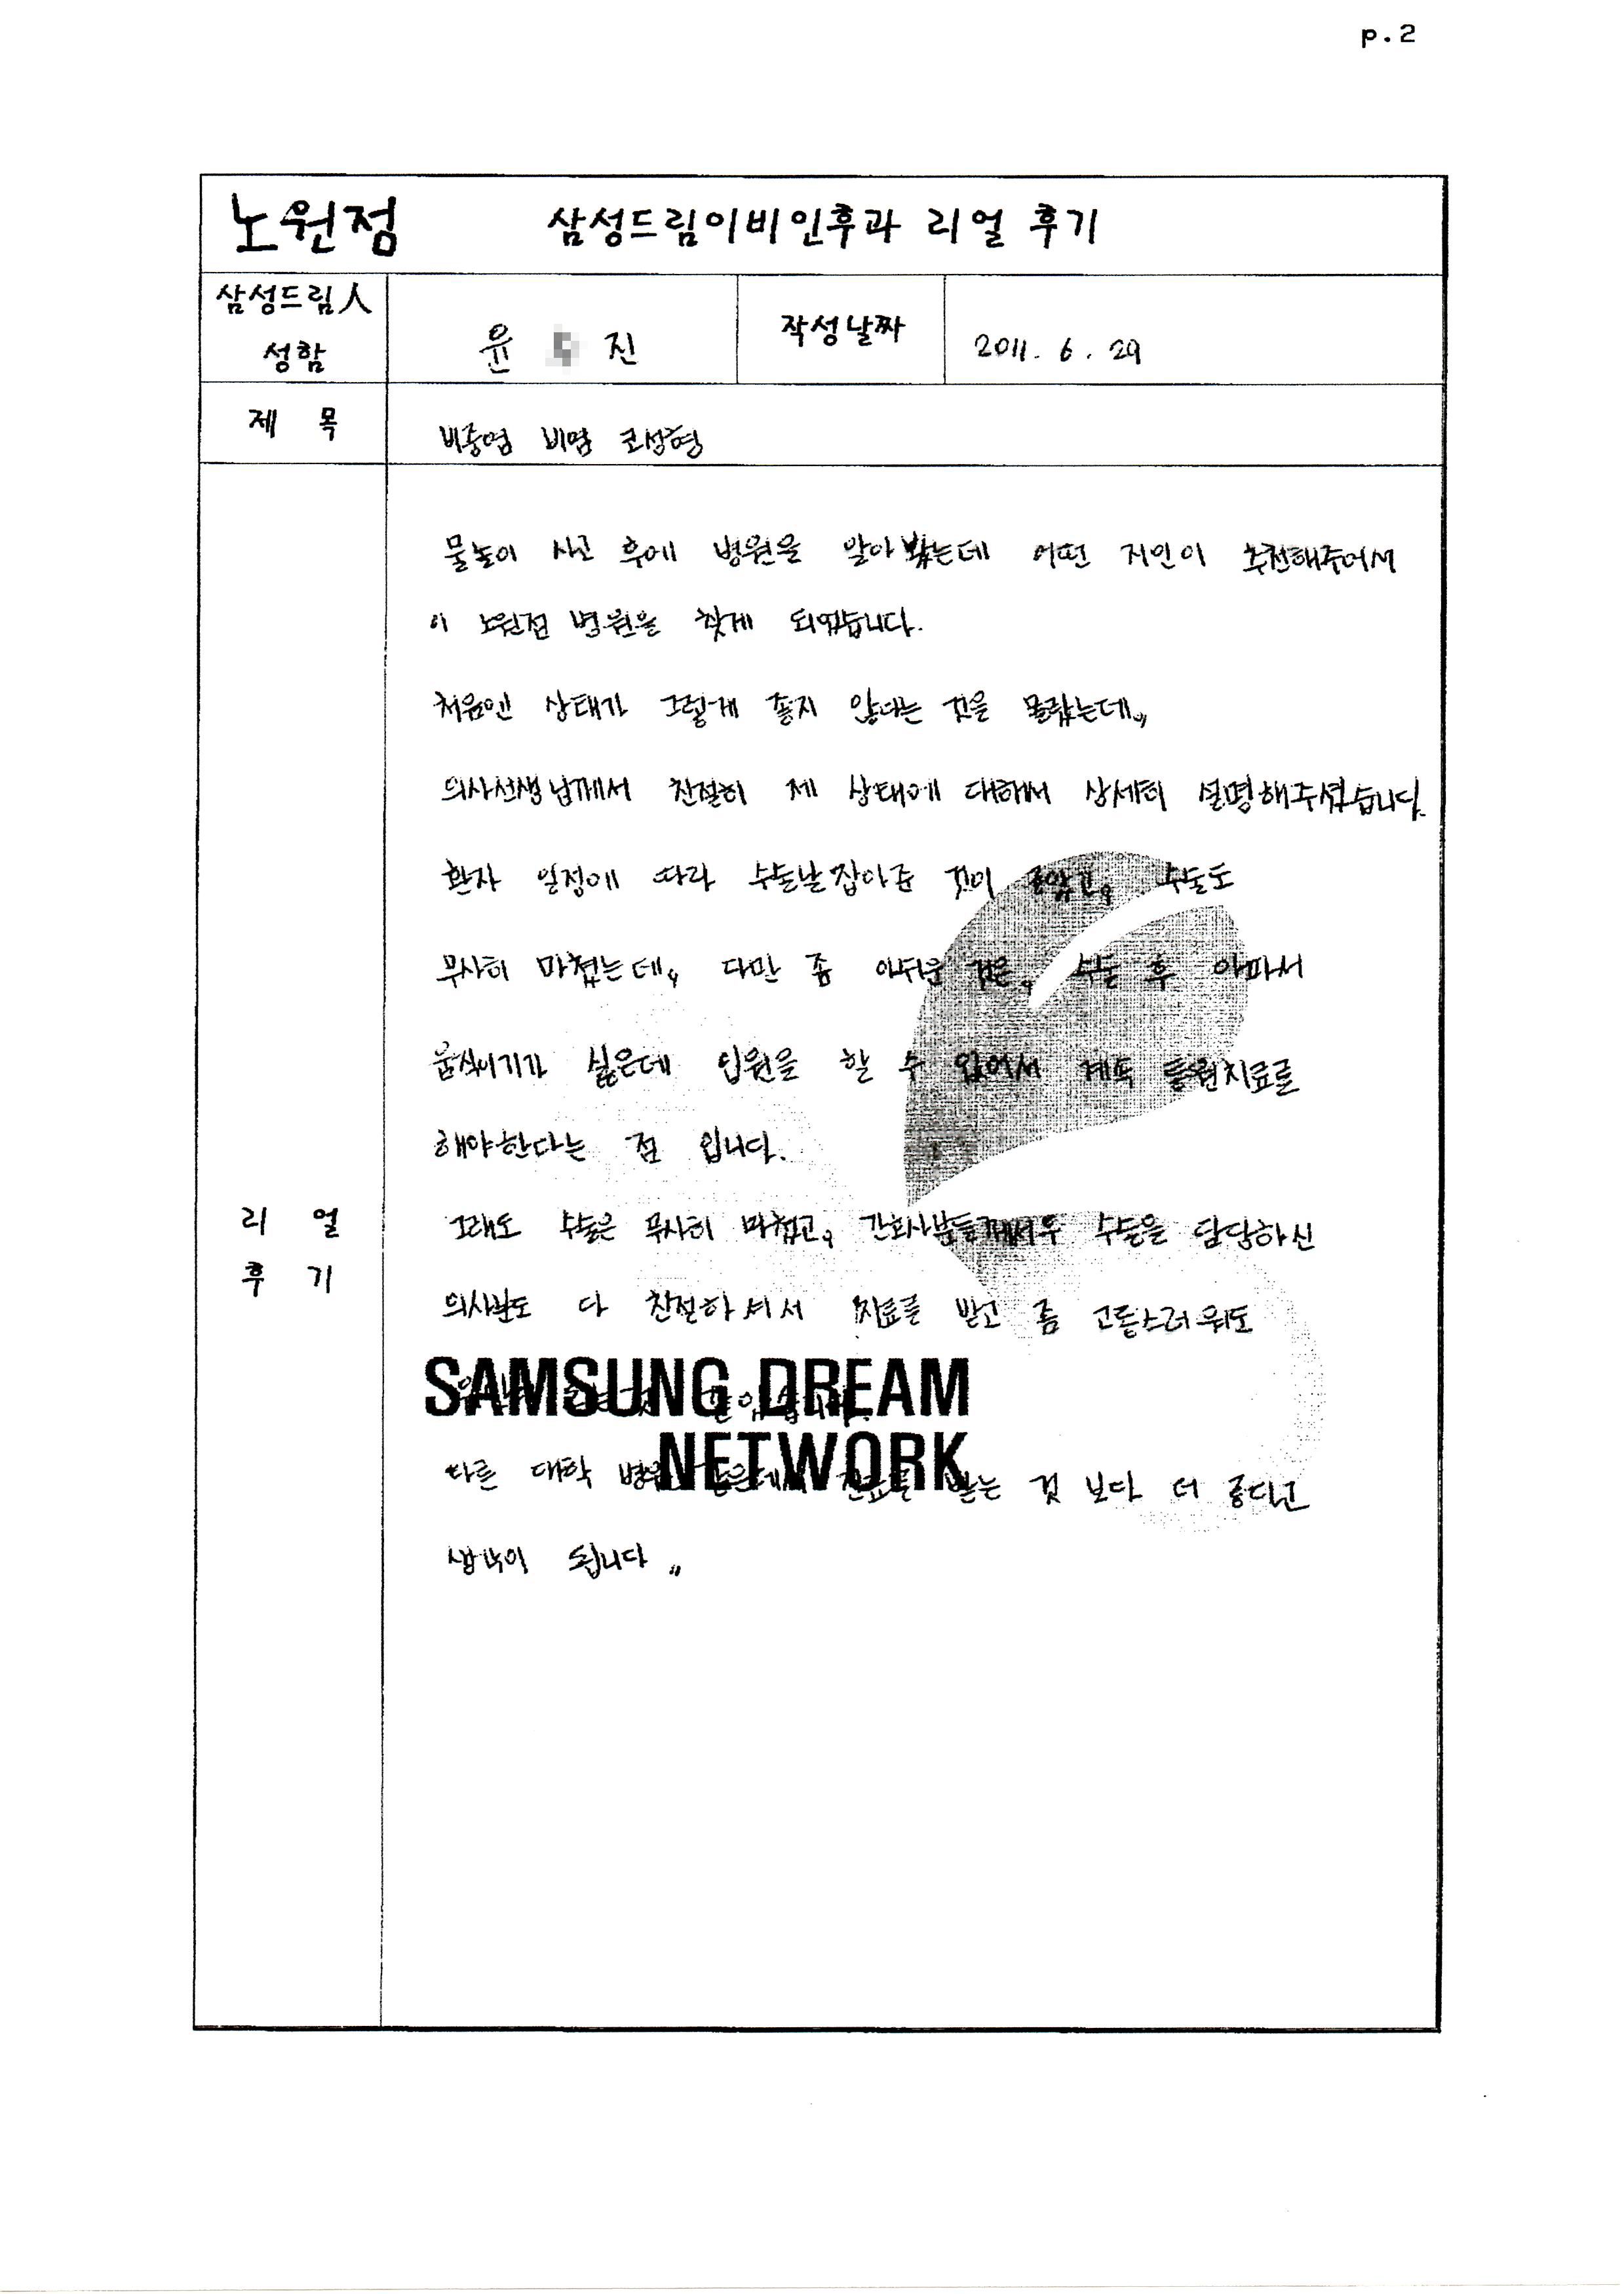 p.2
노원점 삼성드림이비인후과 리얼 후기
삼성드림人
성함
윤 진
작성날짜
2011. 6. 29
제 목
비중염 비염 코성형
물놀이 사고 후에 병원을 알아봤는데 어떤 지인이 추천해주어서
이 노원점 병원을 찾게 되었습니다.
처음엔 상태가 그렇게 좋지 않다는 것을 몰랐는데,,
의사선생님께서 친절히 제 상태에 대해서 상세히 설명해주셨습니다.
환자 일정에 따라 수술날 잡아준 것이 좋았고, 수술도
무사히 마쳤는데, 다만 좀 아쉬운 것은, 수술 후 아파서
움직이기가 싫은데 입원을 할 수 없어서 계속 통원치료를
해야한다는 점 입니다.
리 얼
후 기
그래도 수술은 무사히 마쳤고, 간호사분들께서두 수술을 담당하신
의사분도 다 친절하셔서 치료를 받고 좀 고통스러워도
SAMSUNG DREAM
NETWORK
다른 대학 병원 받는 것 보다 더 좋다고
생각이 됩니다 ,,